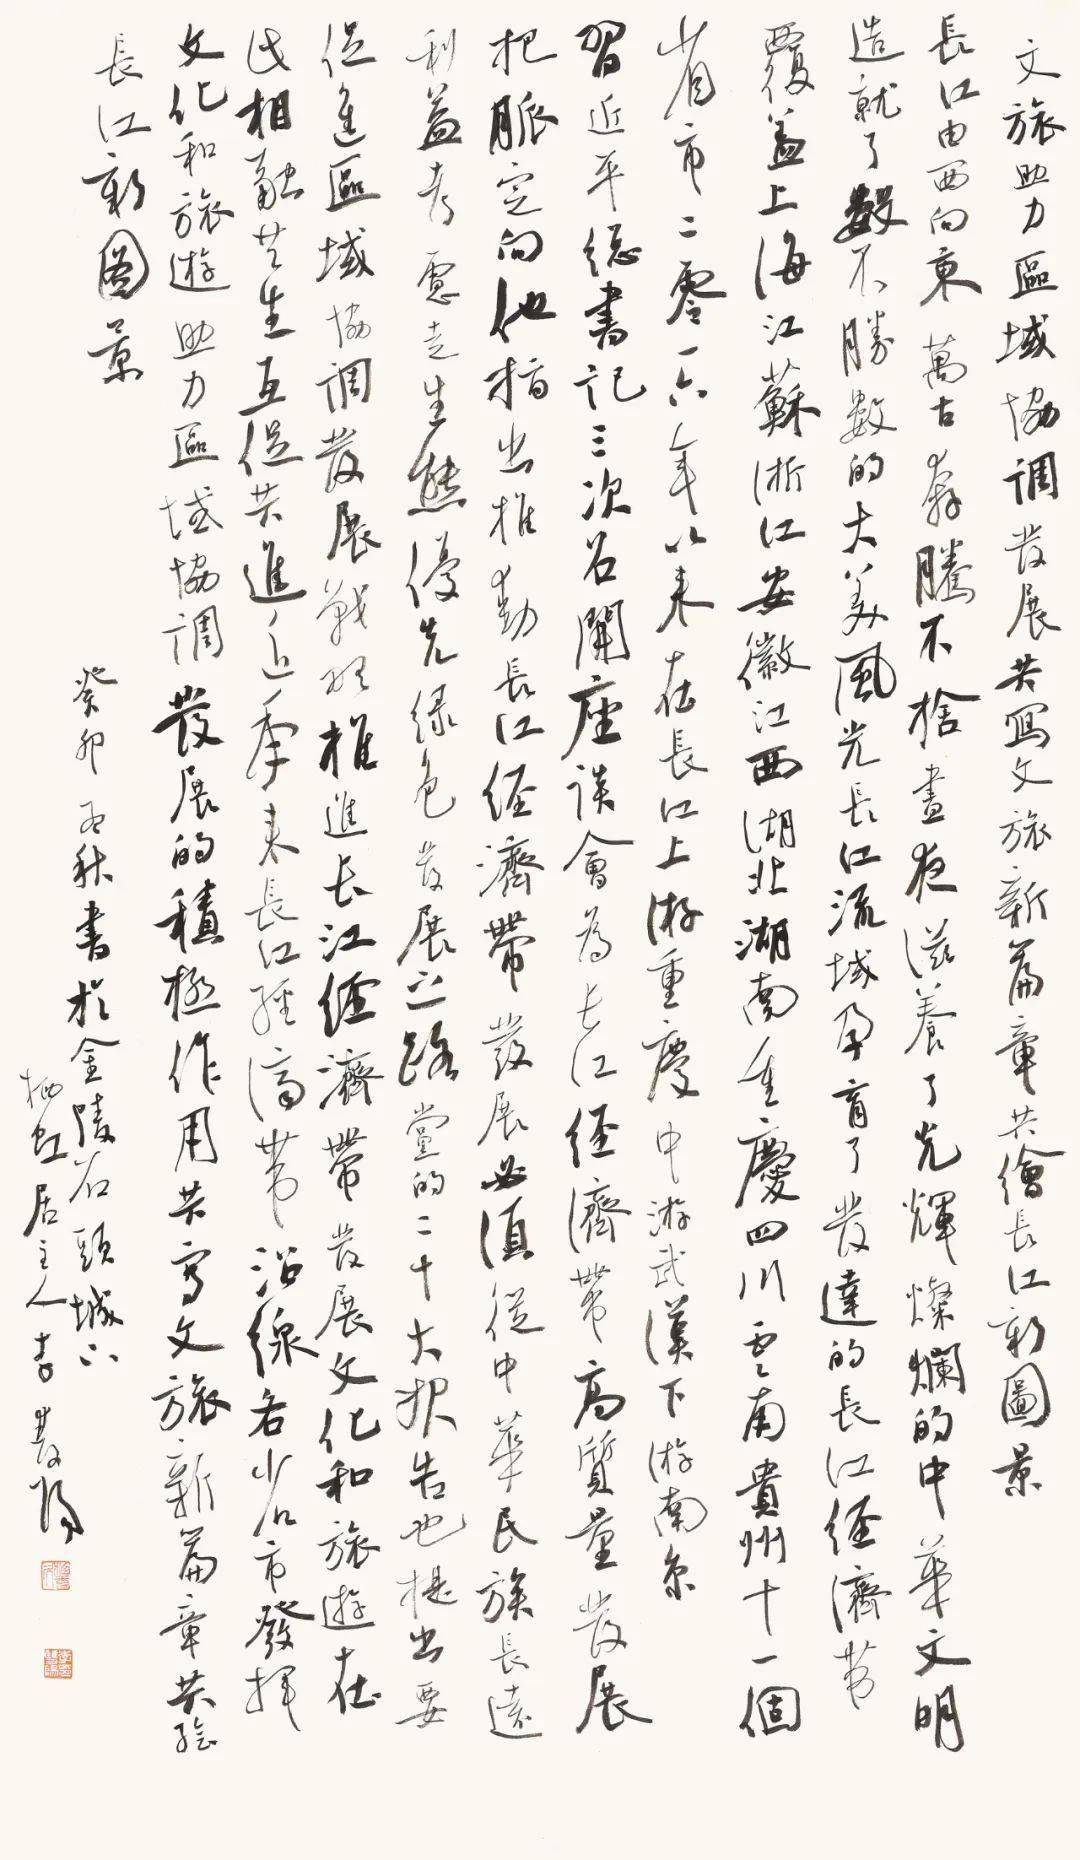 文旅助力區域協調發展共寫文旅新篇章共繪長江新圖景
長江由西向東萬古奔騰不捨晝夜滋養了光輝燦爛的中華文明
造就了數不勝數的大美風光長江流域孕育了發達的長江經濟帶
覆蓋上海江蘇浙江安徽江西湖北湖南重慶四川雲南貴州十一個
省市二零一六年以來在長江上游重慶中游武漢下游南京
習近平總書記三次召開座談會為長江經濟帶高質量發展
把脈定向他指出推動長江經濟帶發展必須從中華民族長遠
利益考慮走生態優先綠色發展之路黨的二十大報告也提出要
促進區域協調發展戰略推進長江經濟帶發展文化和旅遊在
此相融共生互促共進近年來長江經濟帶沿線各省市發揮
文化和旅遊助力區域協調發展的積極作用共寫文旅新篇章共繪
長江新圖景
癸卯秋書於金陵石頭城下
栖虹居主人李陽